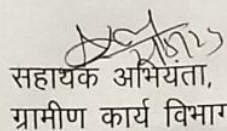 सहायक अभियंता,
ग्रामीण कार्य विभाग